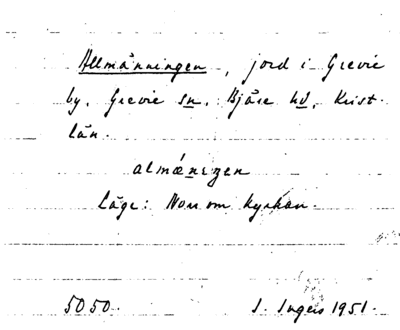 Allmänningen, jord i Grevie
by, Grevie sn. Bjäre hd, Krist.
län.
almǽnɪŋen
Läge: Norr om kyrkan.
5050. I. Ingers 1951.